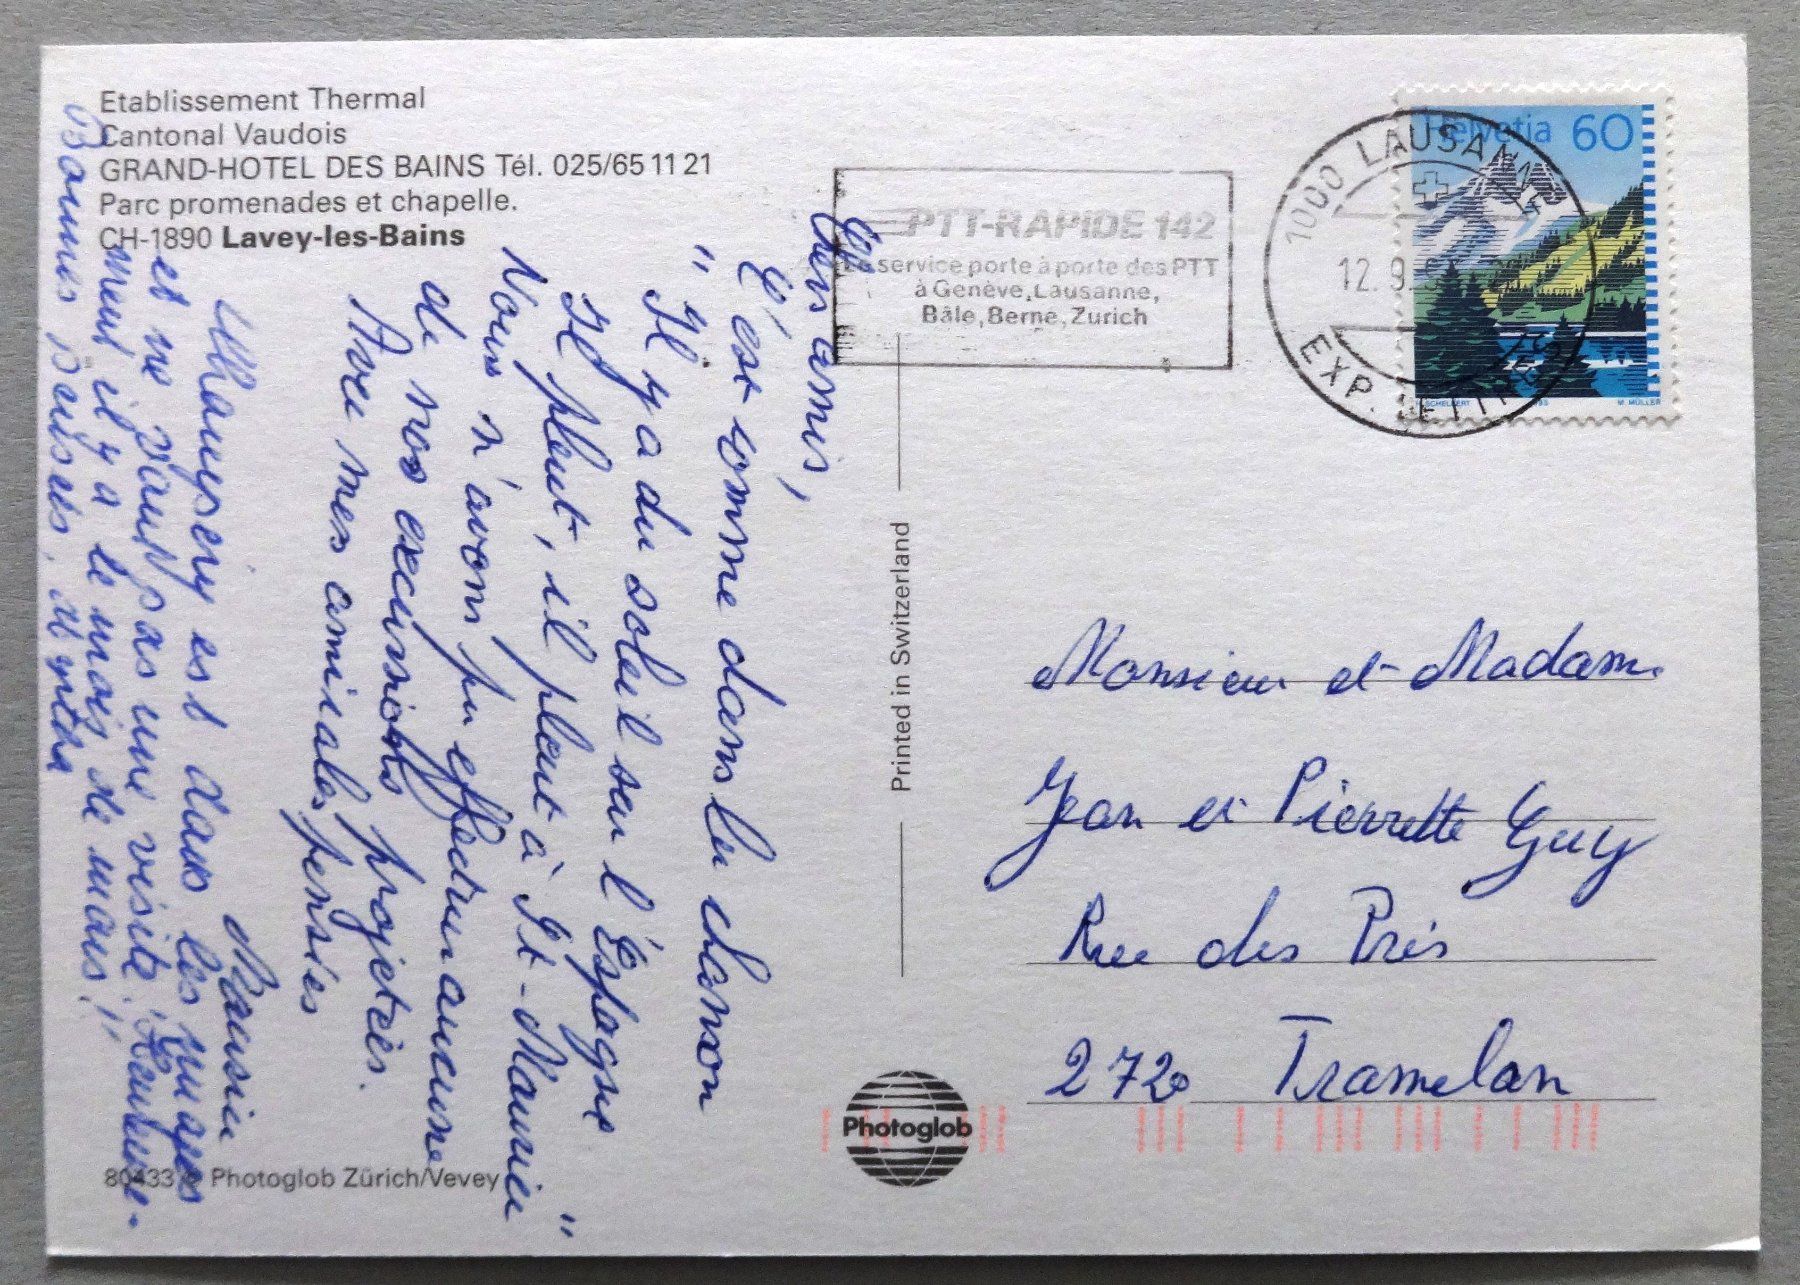 Etablissement Thermal
Cantonal Vaudois
GRAND-HOTEL DES BAINS Tél. 025/65 11 21
Parc promenades et chapelle.
CH-1890 Lavey-les-Bains
PTT-RAPIDE 142
Le service porte à porte des PTT
à Genève, Lausanne,
Bâle, Berne, Zurich
1000 LAUSANNE
12.9.
EXP. LETTRES
Helvetia 60
M. MÜLLER
Chers amis,
C'est comme dans la chanson
"Il y a du soleil sur l'Espagne
Il pleut, il pleut à St-Maurice"
Nous n'avons pu effectuer aucune
de nos excursions projetées.
Avec mes amicales pensées
Mauricin
est dans les nuages
et ne vaut pas une visite. Heureuse-
ment il y a le mois de mars!!
Bonnes Bises. et
Printed in Switzerland
Monsieur et Madame
Jean et Pierrette Guy
Rue des Prés
2720 Tramelan
Photoglob
80433 © Photoglob Zürich/Vevey